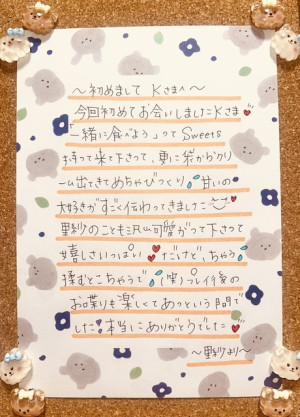 〜初めまして Kさまへ〜
今回初めてお会いしましたKさま
「一緒に食べよう」って Sweets
持って来て下さって、更に袋からクリ
ーム出てきてめちゃびっくり 甘いの
大好きがすごく伝わってきました
里紗のことも沢山可愛がって下さって
嬉しさいっぱい だけど、ちゃう
揉むとこちゃうで (笑)プレイ後の
お喋りも楽しくてあっという間で
した! 本当にありがとうでした
〜里紗より〜